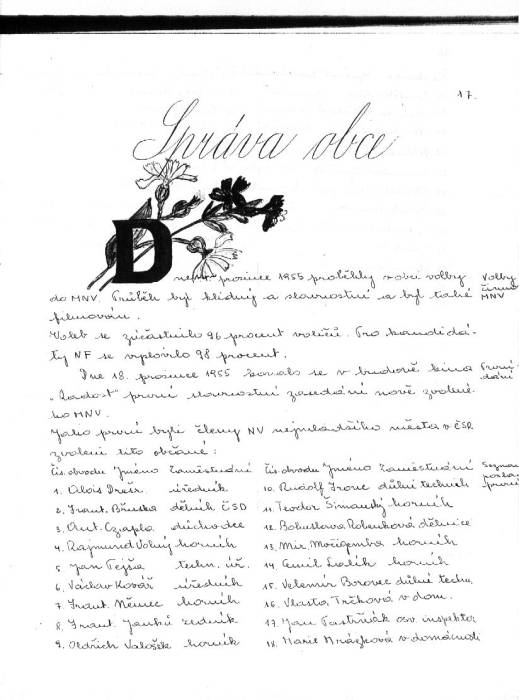 17.
Správa obce
Dne 11. prosince 1955 proběhly v obci volby
do MNV. Průběh byl klidný a slavnostní a byl také
filmován.
Voleb se zúčastnilo 96 procent voličů. Pro kandidá-
ty NF se vyslovilo 98 procent.
Dne 18. prosince 1955 konalo se v budově kina
"Radost" první slavnostní zasedání nově zvolené-
ho MNV.
Jako první byli členy NV nejmladšího města v ČSR
zvoleni tito občané:
Volby
MNV
První
dání
Seznam
první
Čís. obvodu Jméno Zaměstnání
1. Alois úředník
2. Frant. Břuska dělník ČSD
3. Ant. Czapla důchodce
4. Rajmund Volný horník
5. Jan Fejša techn. úř.
6. Václav Kovář úředník
7. Frant. Němec horník
8. Frant. Janků zedník
9. Oldřich Valošek horník
Čís. obvodu Jméno Zaměstnání
10. Rudolf důlní technik
11. Teodor Šimanský horník
12. Bohuslava dělnice
13. Mir. Močigemba horník
14. Emil horník
15. Velemír Borovec důlní techn.
16. Vlasta Trčková v dom.
17. Jan Pastrňák osv. inspektor
18. Marie Mrázková v domácnosti